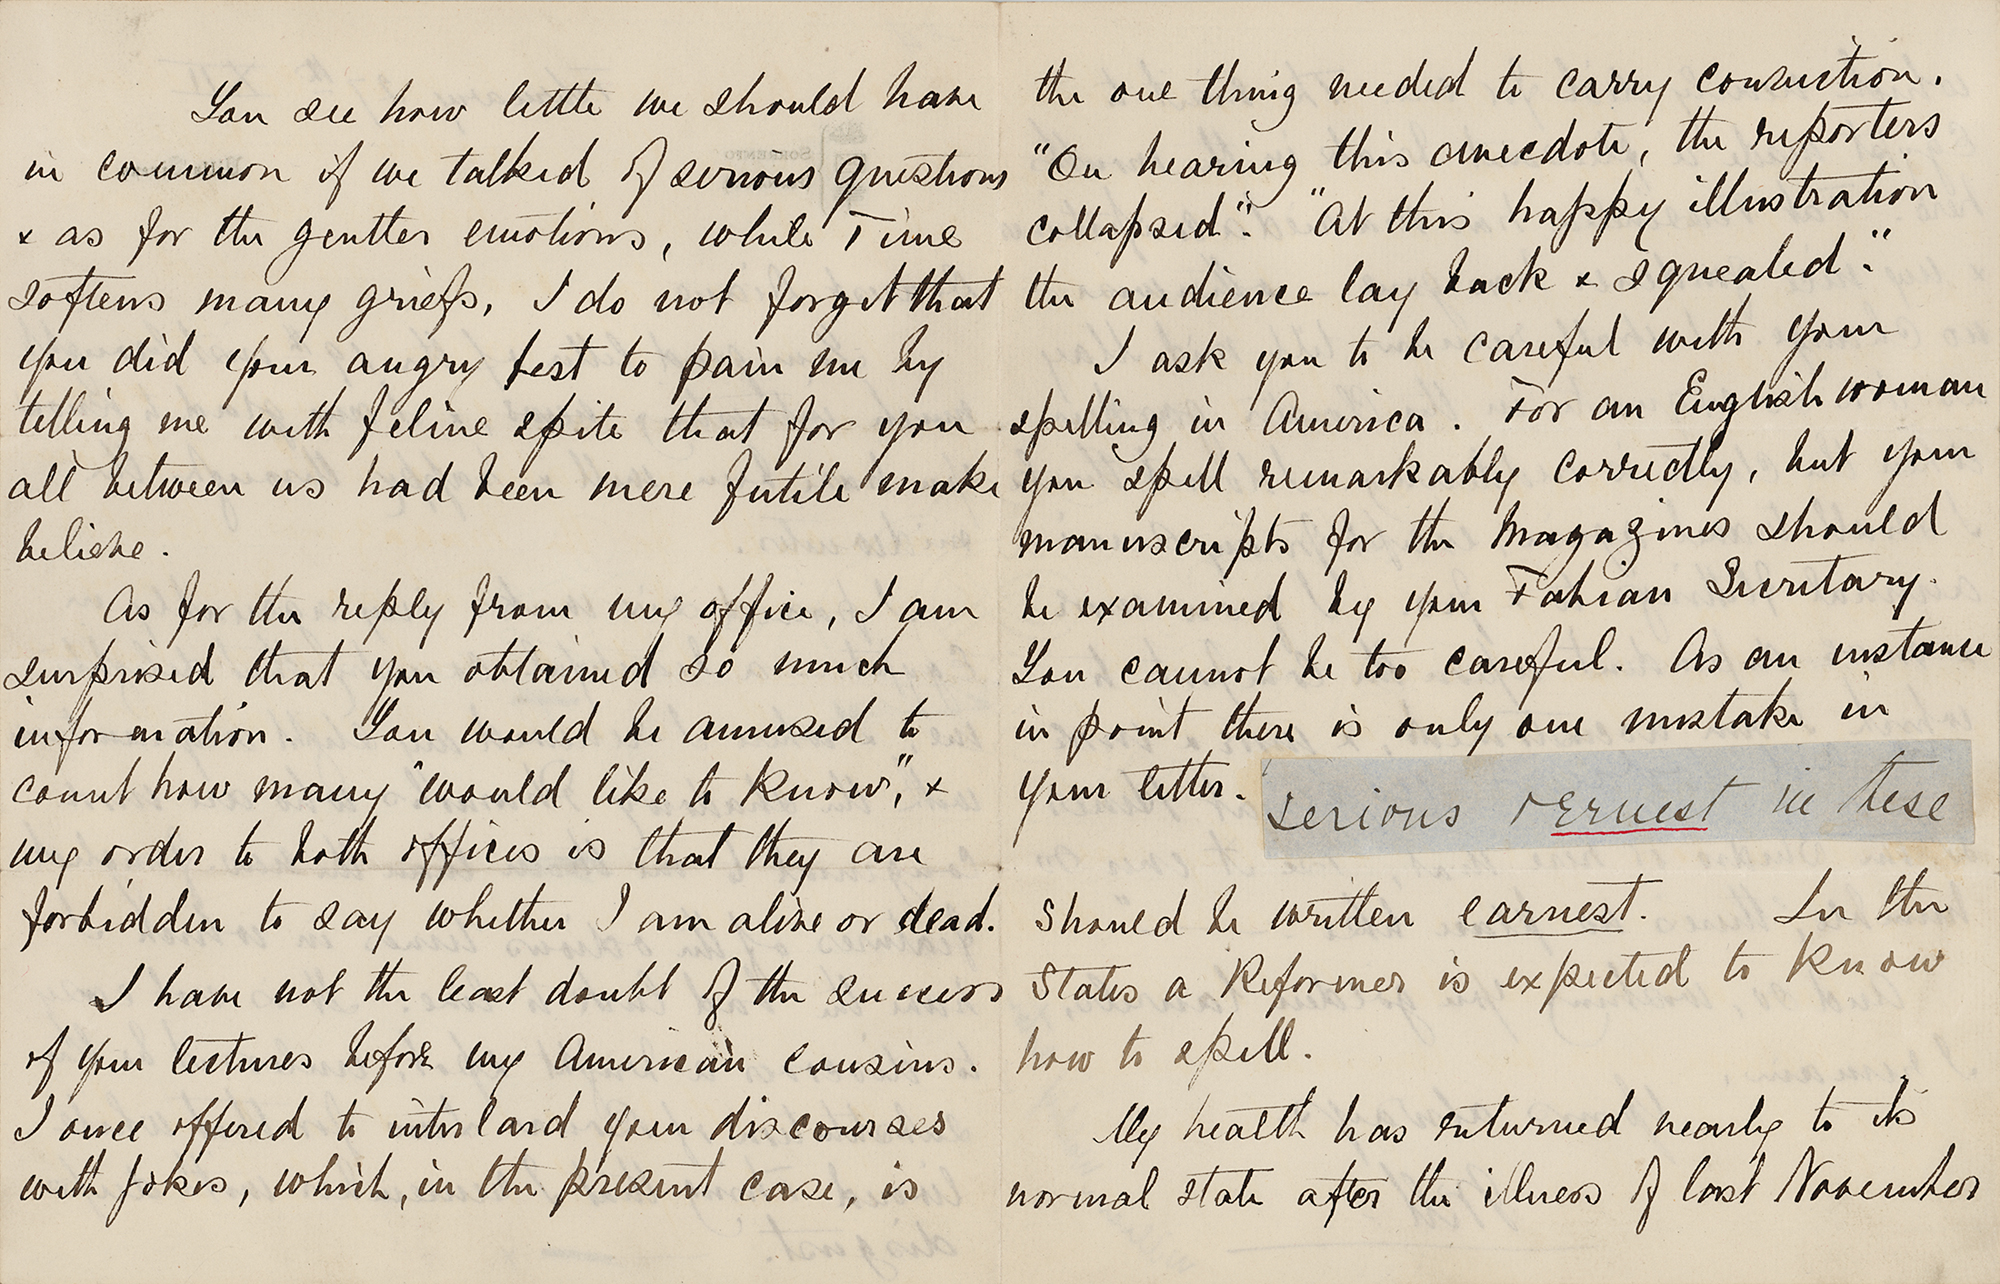 You see how little we should have
in common if we talked of serious questions
& as for the gentler emotions, while Time
softens many griefs, I do not forget that
you did your angry best to pain me by
telling me with feline spite that for you
all between us had been mere futile make
believe.
As for the reply from my office, I am
surprised that you obtained so much
information. You would be amused to
count how many "would like to know", &
my order to both offices is that they are
forbidden to say whether I am alive or dead.
I have not the least doubt of the success
of your lectures before my American cousins.
I once offered to interlard your discourses
with jokes, which, in the present case, is
the one thing needed to carry conviction.
"On hearing this anecdote, the reporters
collapsed". "At this happy illustration
the audience lay back & squealed."
I ask you to be careful with your
spelling in America. For an Englishwoman
you spell remarkably correctly, but your
manuscripts for the Magazines should
be examined by your Fabian Secretary.
You cannot be too careful. As an instance
in point there is only one mistake in
your letter. serious & ernest in these
should be written earnest. In the
States a Reformer is expected to know
how to spell.
My health has returned nearly to its
normal state after the illness of last November